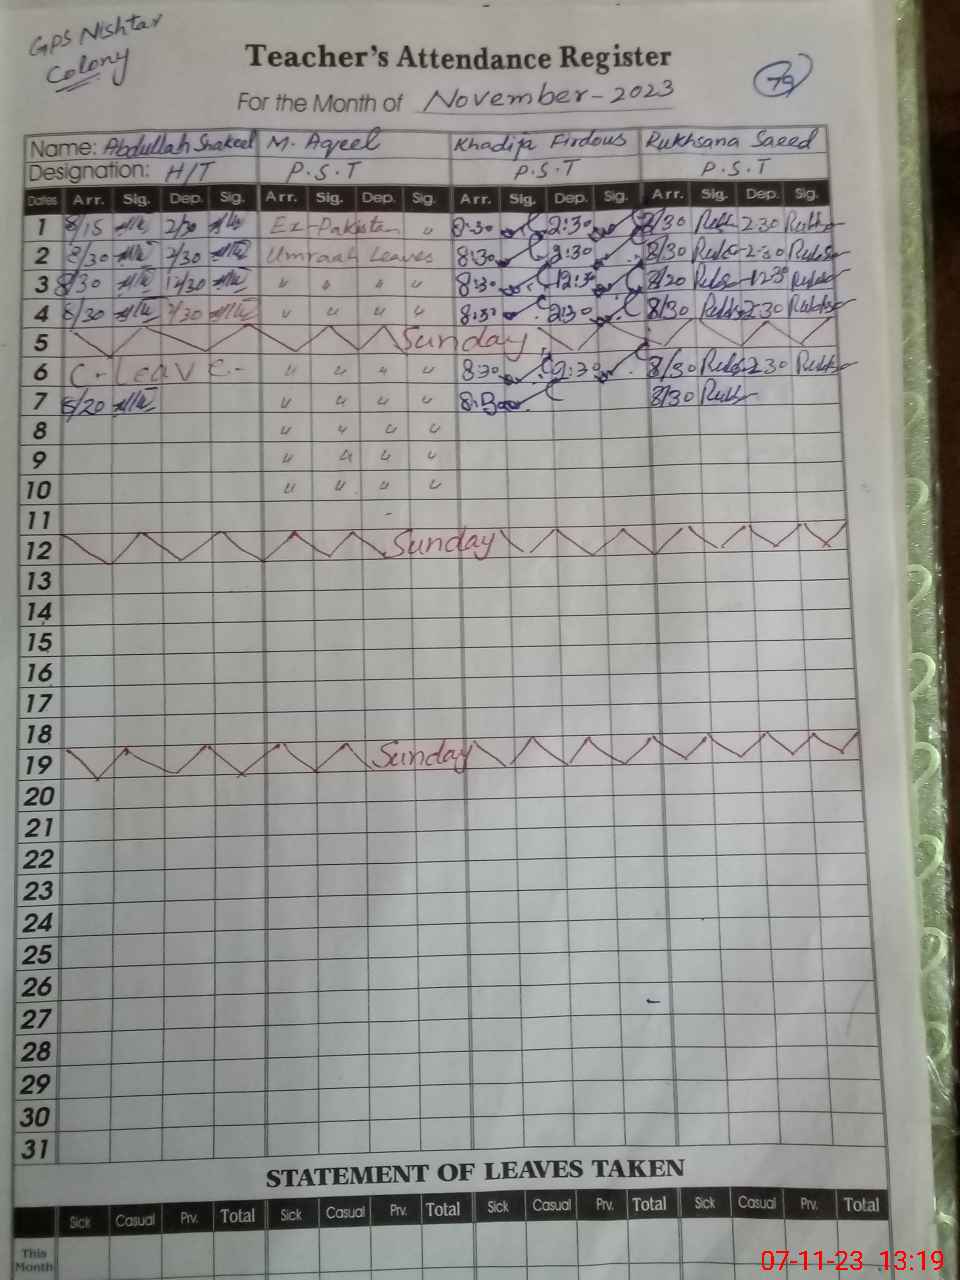 GPS Nishtar
Colony
Teacher's Attendance Register
79
For the Month of November-2023
Name: Abdullah Shakeel M. Aqeel Khadija Firdous Rukhsana Saeed
Designation: H/T P.S.T P.S.T P.S.T
Dates Arr. Sig. Dep. Sig. Arr. Sig. Dep. Sig. Arr. Sig. Dep. Sig. Arr. Sig. Dep. Sig.
1 8/15 2/30 Ex-Pakistan " 8:30 2:30 8/30 2:30
2 8/30 2/30 Umraah Leaves 8:30 2:30 8/30 2:30
3 8/30 12/30 " " " " 8:30 12:30 8/20 12:30
4 8/30 2/30 " " " " 8:30 2:30 8/30 2:30
5 Sunday
6 C-Leave- " " " " 8:30 2:30 8/30 2:30
7 8/20 " " " " 8:30 8/30
8 " " " "
9 " " " "
10 " " " "
11
12 Sunday
13
14
15
16
17
18
19 Sunday
20
21
22
23
24
25
26
27
28
29
30
31
STATEMENT OF LEAVES TAKEN
Sick Casual Prv. Total Sick Casual Prv. Total Sick Casual Prv. Total Sick Casual Prv. Total
This
Month
07-11-23 13:19